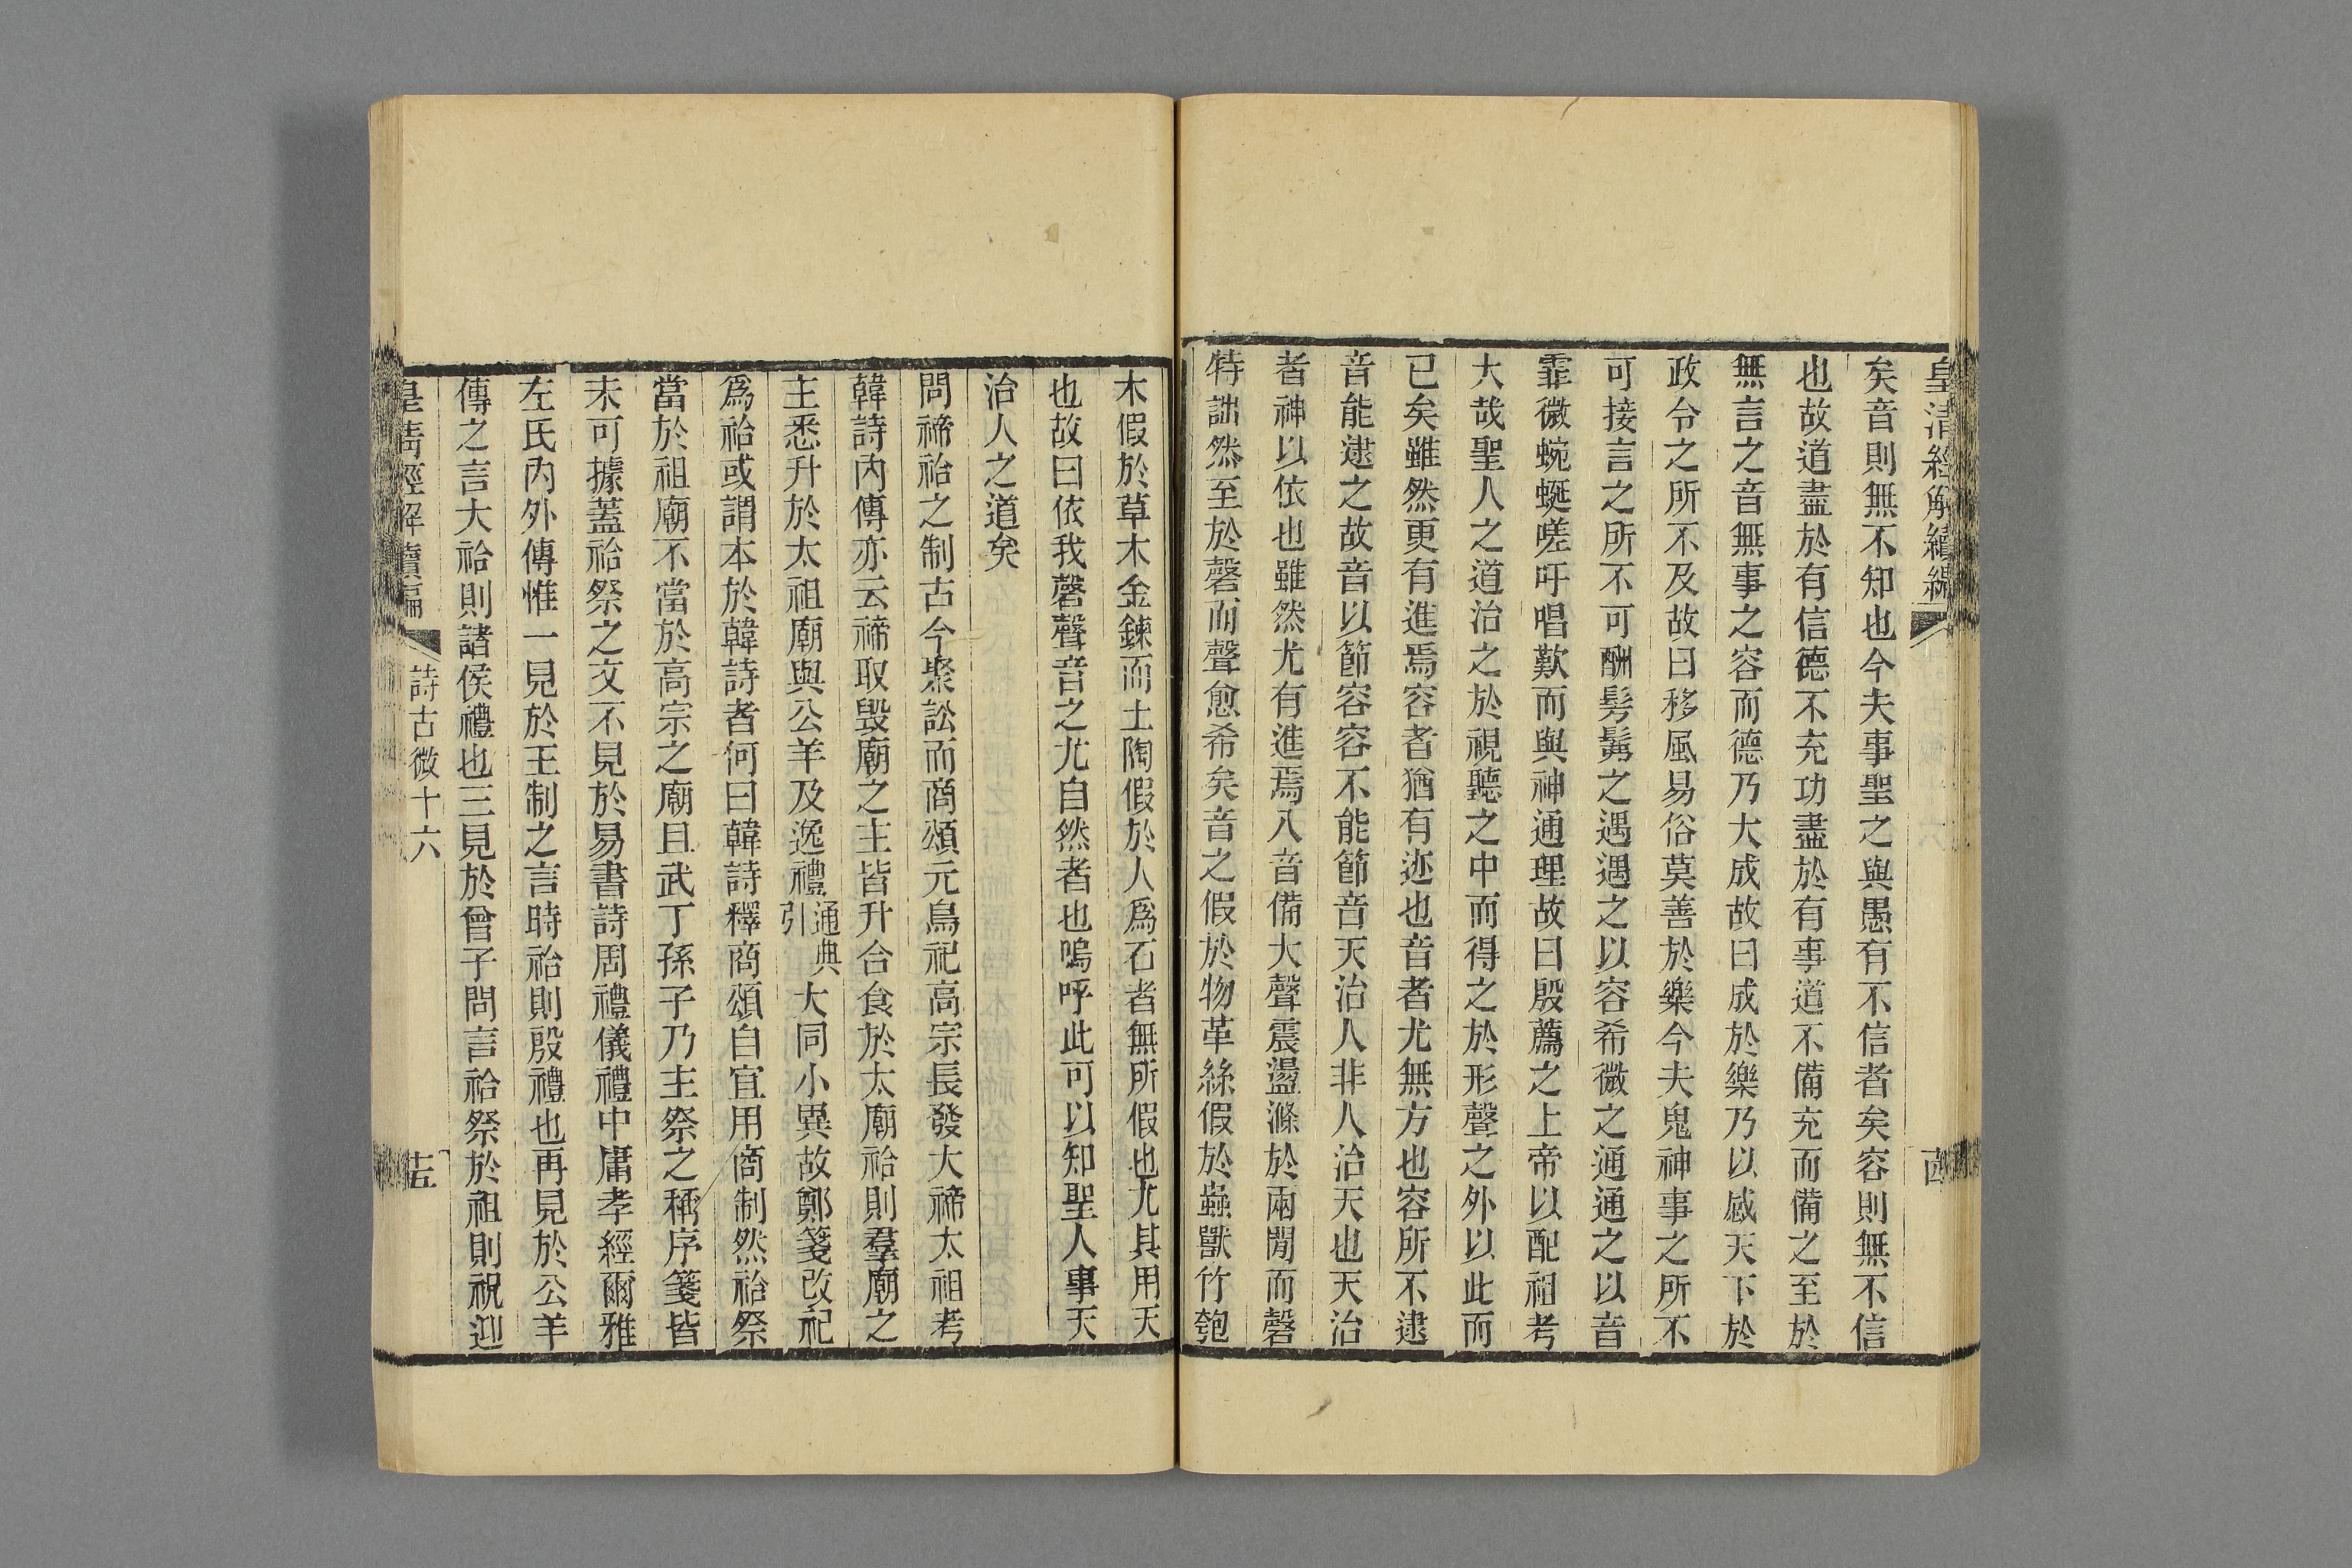 皇清經解續編
矣音則無不知也今夫事聖之與愚有不信者矣容則無不信
也故道盡於有信德不充功盡於有事道不備充而備之至於
無言之音無事之容而德乃大成故曰成於樂乃以感天下於
政令之所不及故曰移風易俗莫善於樂今夫鬼神事之所不
可接言之所不可酬髣髴之遇遇之以容希微之通通之以音
霏微蜿蜒嗟吁唱歎而與神通理故曰殷薦之上帝以配祖考
大哉聖人之道治之於視聽之中而得之於形聲之外以此而
已矣雖然更有進焉容者猶有迹也音者尤無方也容所不逮
音能逮之故音以節容容不能節音天治人非人治天也天治
者神以依也雖然尤有進焉八音備大聲震盪滌於兩閒而磬
特詘然至於磬而聲愈希矣音之假於物革絲假於蟲獸竹匏
木假於草木金鍊而土陶假於人爲石者無所假也尤其用天
也故曰依我磬聲音之尤自然者也嗚呼此可以知聖人事天
治人之道矣
問禘祫之制古今聚訟而商頌元鳥祀高宗長發大禘太祖考
韓詩內傳亦云禘取毀廟之主皆升合食於太廟祫則羣廟之
主悉升於太祖廟與公羊及逸禮通典引大同小異故鄭箋改祀
爲祫或謂本於韓詩者何曰韓詩釋商頌自宜用商制然祫祭
當於祖廟不當於高宗之廟且武丁孫子乃主祭之稱序箋皆
未可據蓋祫祭之文不見於易書詩周禮儀禮中庸孝經爾雅
左氏內外傳惟一見於王制之言時祫則殷禮也再見於公羊
傳之言大祫則諸侯禮也三見於曾子問言祫祭於祖則祝迎
皇清經解續編
詩古微十六
十五